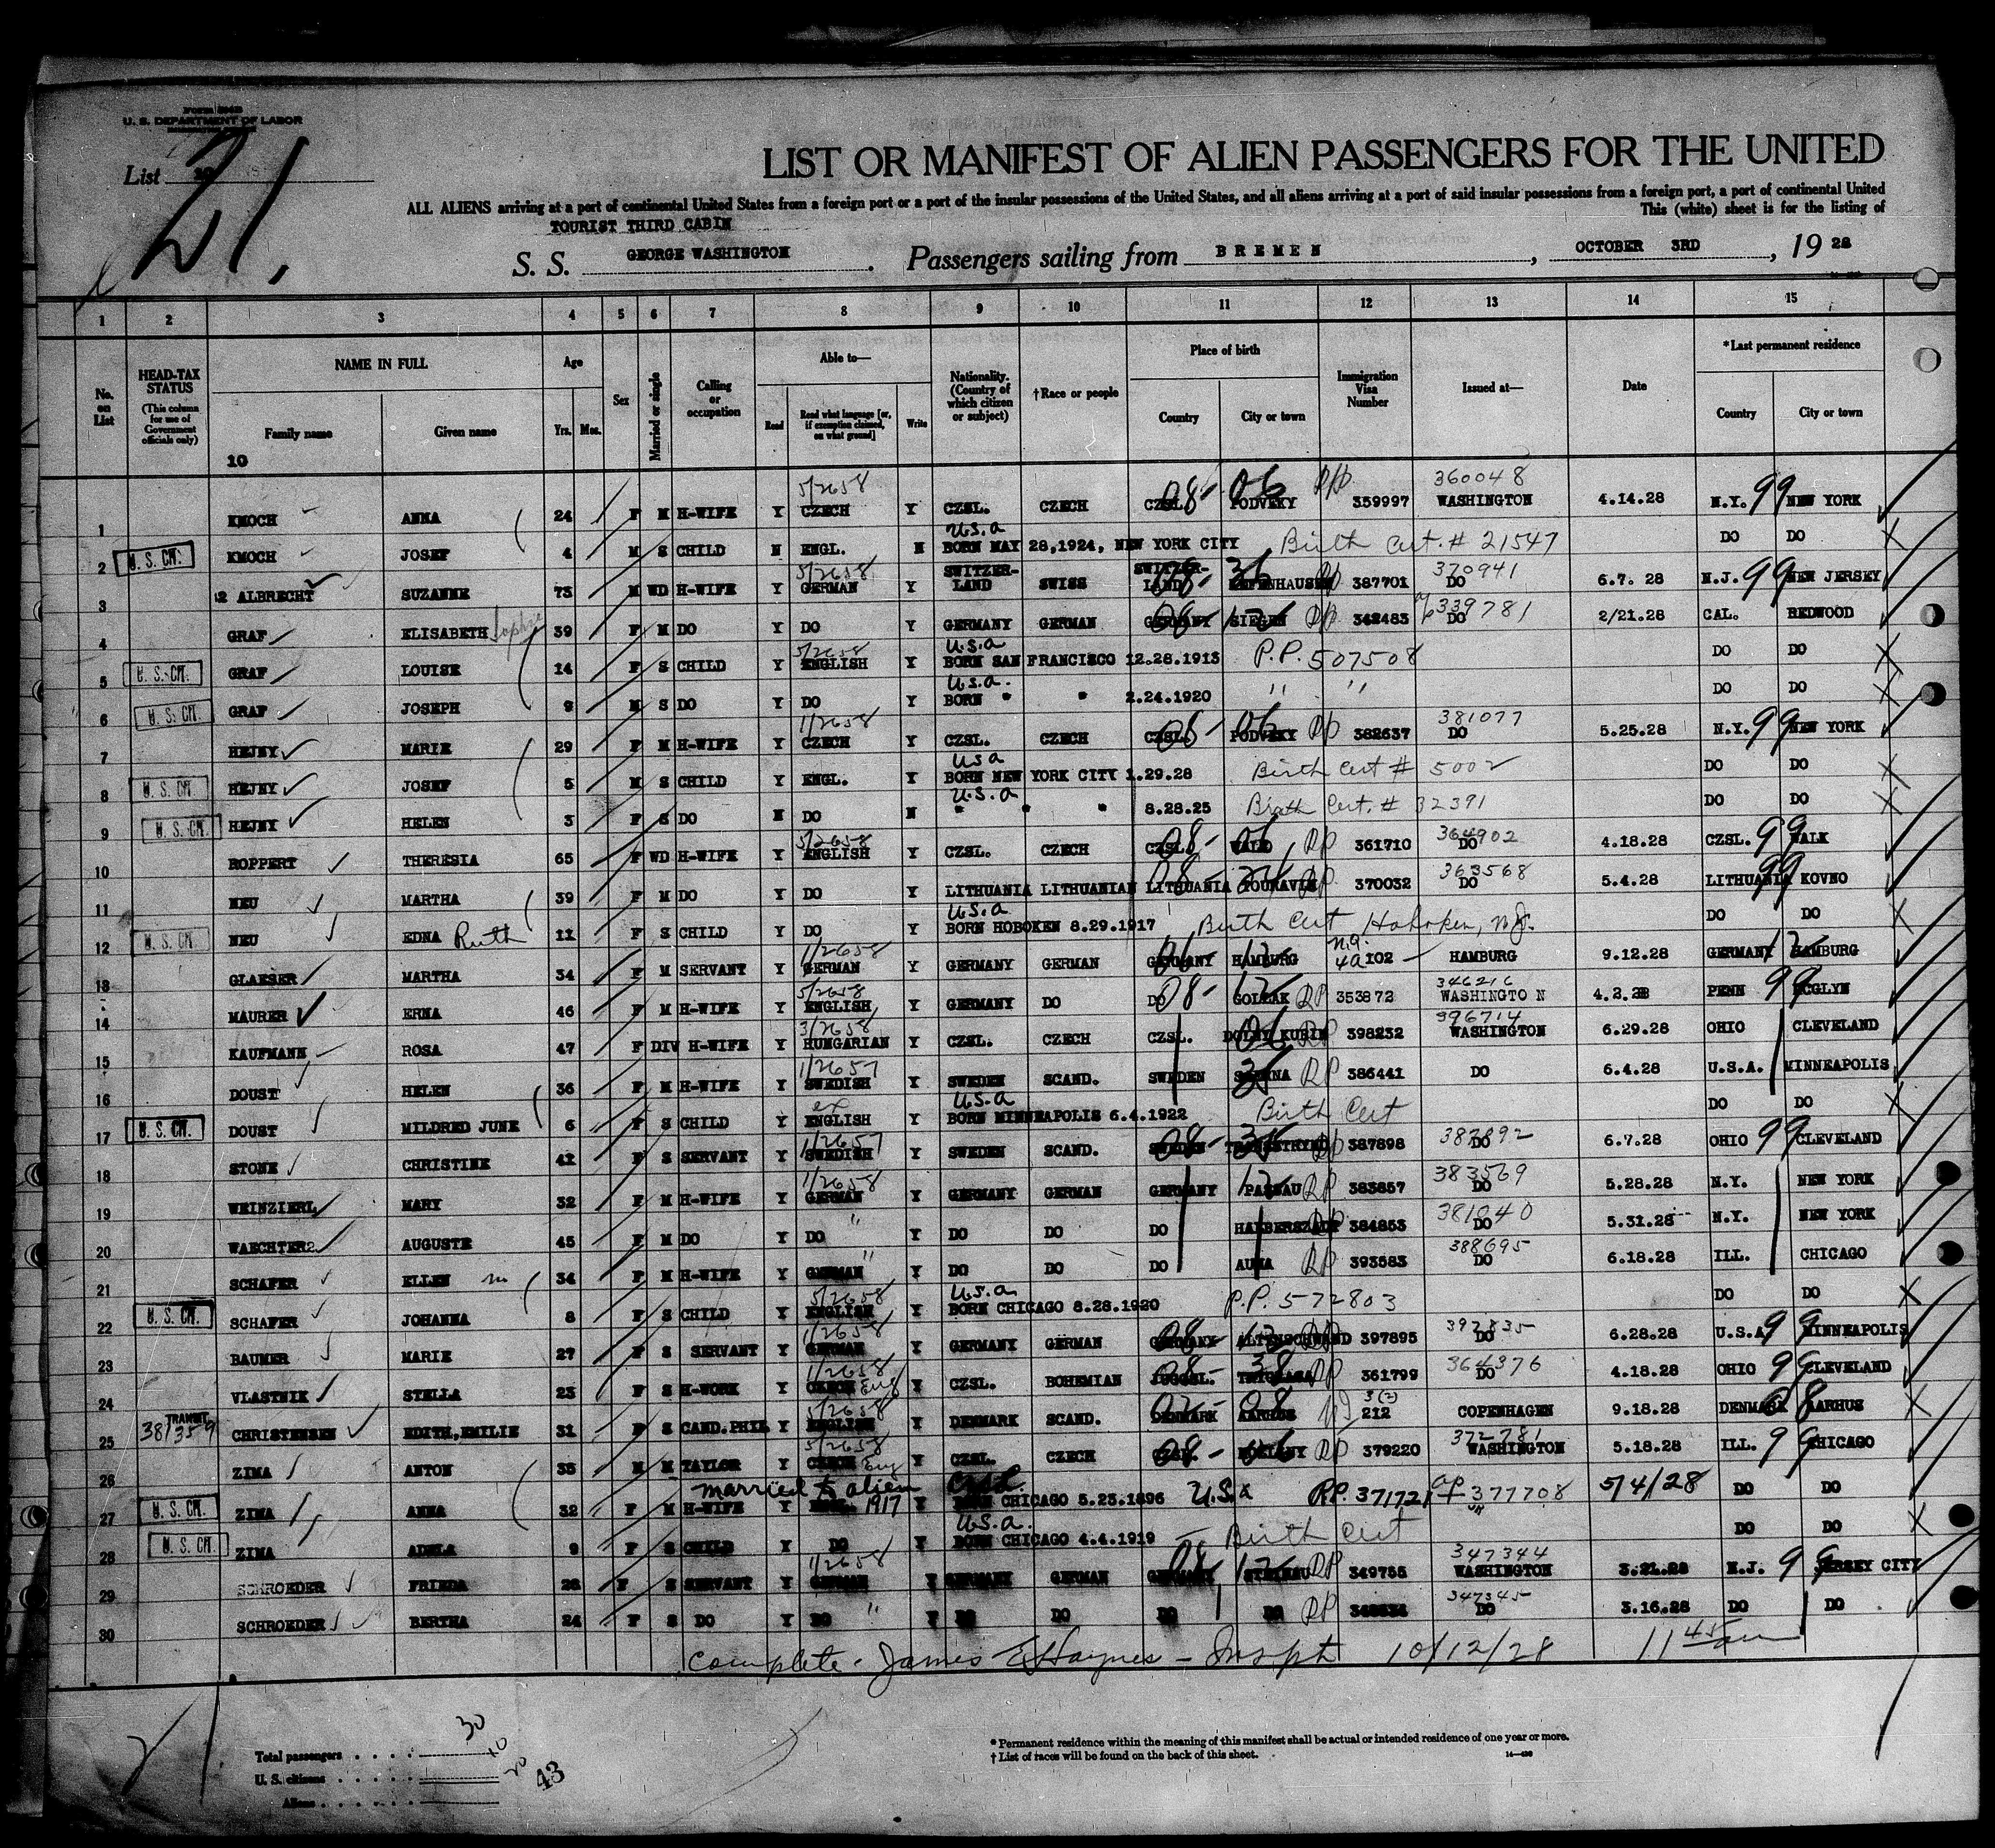 Form 500B
U. S. DEPARTMENT OF LABOR
List 21.
LIST OR MANIFEST OF ALIEN PASSENGERS FOR THE UNITED
ALL ALIENS arriving at a port of continental United States from a foreign port or a port of the insular possessions of the United States, and all aliens arriving at a port of said insular possessions from a foreign port, a port of continental United
This (white) sheet is for the listing of
TOURIST THIRD CABIN
S. S. GEORGE WASHINGTON. Passengers sailing from BREMEN, OCTOBER 3RD, 19 28
1 2 3 4 5 6 7 8 9 10 11 12 13 14 15
No. on List HEAD-TAX STATUS (This column for use of Government officials only) NAME IN FULL Family name Given name Age Yrs. Mos. Sex Married or single Calling or occupation Able to— Read Read what language [or, if exemption claimed, on what ground] Write Nationality. (Country of which citizen or subject) †Race or people Place of birth Country City or town Immigration Visa Number Issued at— Date *Last permanent residence Country City or town
10
1 KNOCH ANNA 24 F M H-WIFE Y 5/2658 CZECH Y CZSL. CZECH CZSL. 08- 06 PODVEKY RP 359997 360048 WASHINGTON 4.14.28 N.Y. 99 NEW YORK
2 U. S. CIT. KNOCH JOSEF 4 M S CHILD N ENGL. N U.S.A BORN MAY 28,1924, NEW YORK CITY Birth Cert. # 21547 DO DO
3 ALBRECHT SUZANNE 73 WD H-WIFE Y 5/2658 GERMAN Y SWITZERLAND SWISS SWITZERLAND 387701 370941 DO 6.7. 28 N.J. 99 NEW JERSEY
4 GRAF ELISABETH Sophie 39 F M DO Y DO Y GERMANY GERMAN GERMANY SIEGEN RP 342483 339781 DO 2/21.28 CAL. REDWOOD
5 U. S. CIT. GRAF LOUISE 14 F S CHILD Y 5/2658 ENGLISH Y U.S.A BORN SAN FRANCISCO 12.28.1913 P.P. 507508 DO DO
6 U. S. CIT. GRAF JOSEPH 8 M S DO Y DO Y U.S.A. BORN " " 2.24.1920 " " DO DO
7 HEJNY MARIE 29 F M H-WIFE Y 1/2658 CZECH Y CZSL. CZECH CZSL. 08- 06 PODVEKY RP 382637 381077 DO 5.25.28 N.Y. 99 NEW YORK
8 U. S. CIT. HEJNY JOSEF 5 M S CHILD Y ENGL. Y USA BORN NEW YORK CITY 1.29.28 Birth Cert # 5002 DO DO
9 U. S. CIT. HEJNY HELEN 3 F S DO N DO N U.S.A " " " 8.28.25 Birth Cert. # 32391 DO DO
10 ROPPERT THERESIA 65 F WD H-WIFE Y 5/2658 ENGLISH Y CZSL. CZECH CZSL. 08- 06 WALD RP 361710 364902 DO 4.18.28 CZSL. 99 WALK
11 NEU MARTHA 39 F M DO Y DO Y LITHUANIA LITHUANIAN LITHUANIA RP 370032 363568 DO 5.4.28 LITHUANIA 99 KOVNO
12 U. S. CIT. NEU EDNA Ruth 11 F S CHILD Y DO Y U.S.A BORN HOBOKEN 8.29.1917 Birth Cert Hoboken, N.J. DO DO
13 GLAESER MARTHA 34 F M SERVANT Y 1/2658 GERMAN Y GERMANY GERMAN GERMANY HAMBURG 102 HAMBURG 9.12.28 GERMANY HAMBURG
14 MAURER ERNA 46 F M H-WIFE Y 5/2658 ENGLISH Y GERMANY DO DO 08- RP 353872 346216 WASHINGTON 4.2.28 PENN 99
15 KAUFMANN ROSA 47 F DIV H-WIFE Y 3/2658 HUNGARIAN Y CZSL. CZECH CZSL. DOLNY KUBIN RP 398232 396714 WASHINGTON 6.29.28 OHIO CLEVELAND
16 DOUST HELEN 36 F M H-WIFE Y 1/2657 SWEDISH Y SWEDEN SCAND. SWEDEN RP 386441 DO 6.4.28 U.S.A. MINNEAPOLIS
17 U. S. CIT. DOUST MILDRED JUNE 6 F S CHILD Y ENGLISH Y U.S.A BORN MINNEAPOLIS 6.4.1922 Birth Cert DO DO
18 STONE CHRISTINE 42 F S SERVANT Y 1/2657 SWEDISH Y SWEDEN SCAND. SWEDEN 08- RP 387898 DO 6.7.28 OHIO 99 CLEVELAND
19 WEINZIERL MARY 32 F M H-WIFE Y 1/2658 GERMAN Y GERMANY GERMAN GERMANY PASSAU RP 383857 383569 DO 5.28.28 N.Y. NEW YORK
20 WAECHTER AUGUSTE 45 F M DO Y DO " Y DO DO DO HALBERSTADT RP 384853 381040 DO 5.31.28 N.Y. NEW YORK
21 SCHAFER ELLEN m 34 F M H-WIFE Y GERMAN " Y DO DO DO AUMA RP 393583 388695 DO 6.18.28 ILL. CHICAGO
22 U. S. CIT. SCHAFER JOHANNA 8 F S CHILD Y 5/2658 ENGLISH Y U.S.A BORN CHICAGO 8.28.1920 P.P. 572803 DO DO
23 BAUMER MARIE 27 F S SERVANT Y 1/2658 GERMAN Y GERMANY GERMAN GERMANY 397895 392835 DO 6.28.28 U.S.A 99 MINNEAPOLIS
24 VLASTNIK STELLA 23 F S H-WORK Y 1/2658 CZECH Eng Y CZSL. BOHEMIAN JUGOSL. 08- 38 RP 361799 364376 DO 4.18.28 OHIO 99 CLEVELAND
25 TRANSIT 38/359 CHRISTENSEN EDITH, EMILIE 31 F S CAND. PHIL Y 5/2658 ENGLISH Y DENMARK SCAND. DENMARK AARHUS 3(2) 212 COPENHAGEN 9.18.28 DENMARK 08 AARHUS
26 ZIMA ANTON 35 M M TAYLOR Y 5/2658 CZECH Eng Y CZSL. CZECH CZSL. 08- 06 RP 379220 372781 WASHINGTON 5.18.28 ILL. 99 CHICAGO
27 U. S. CIT. ZIMA ANNA 32 F M H-WIFE married to alien Y 1917 Y BORN CHICAGO 5.23.1896 U.S.A R.P. 371721 377708 5/4/28 DO DO
28 U. S. CIT. ZIMA ADELA 9 F S CHILD Y DO Y U.S.A. BORN CHICAGO 4.4.1919 - Birth Cert DO DO
29 SCHROEDER FRIEDA 28 F S SERVANT Y 1/2658 GERMAN Y GERMANY GERMAN GERMANY 08 RP 349755 347344 WASHINGTON 3.21.28 N.J. 99 JERSEY CITY
30 SCHROEDER BERTHA 24 F S DO Y DO " Y DO DO DO DO RP 347345 DO 3.16.28 DO DO
complete - James E Haynes - Inspt 10/12/28 11 45 am
Total passengers . . . . 30
U. S. citizens . . . . . 10
Aliens . . . . . . 20
43
* Permanent residence within the meaning of this manifest shall be actual or intended residence of one year or more.
† List of races will be found on the back of this sheet.